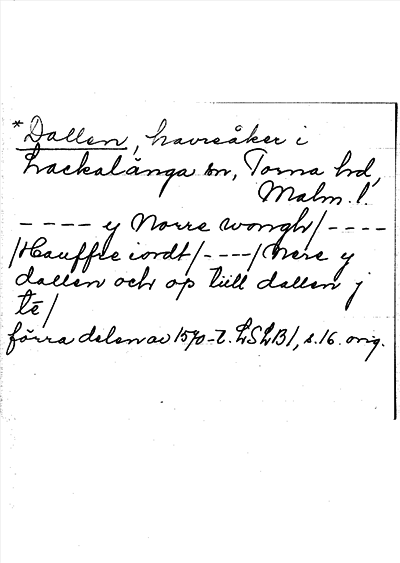 *Dallen, havreåker i
Lackalänga sn, Torna hd,
Malm. l.
---- y Norre wongh/----
/Hauffre iordt/----/Nere y
dallen och op tiill dallen j
tē/
förra delen av 1570-t. LSLB1, s.16. orig.